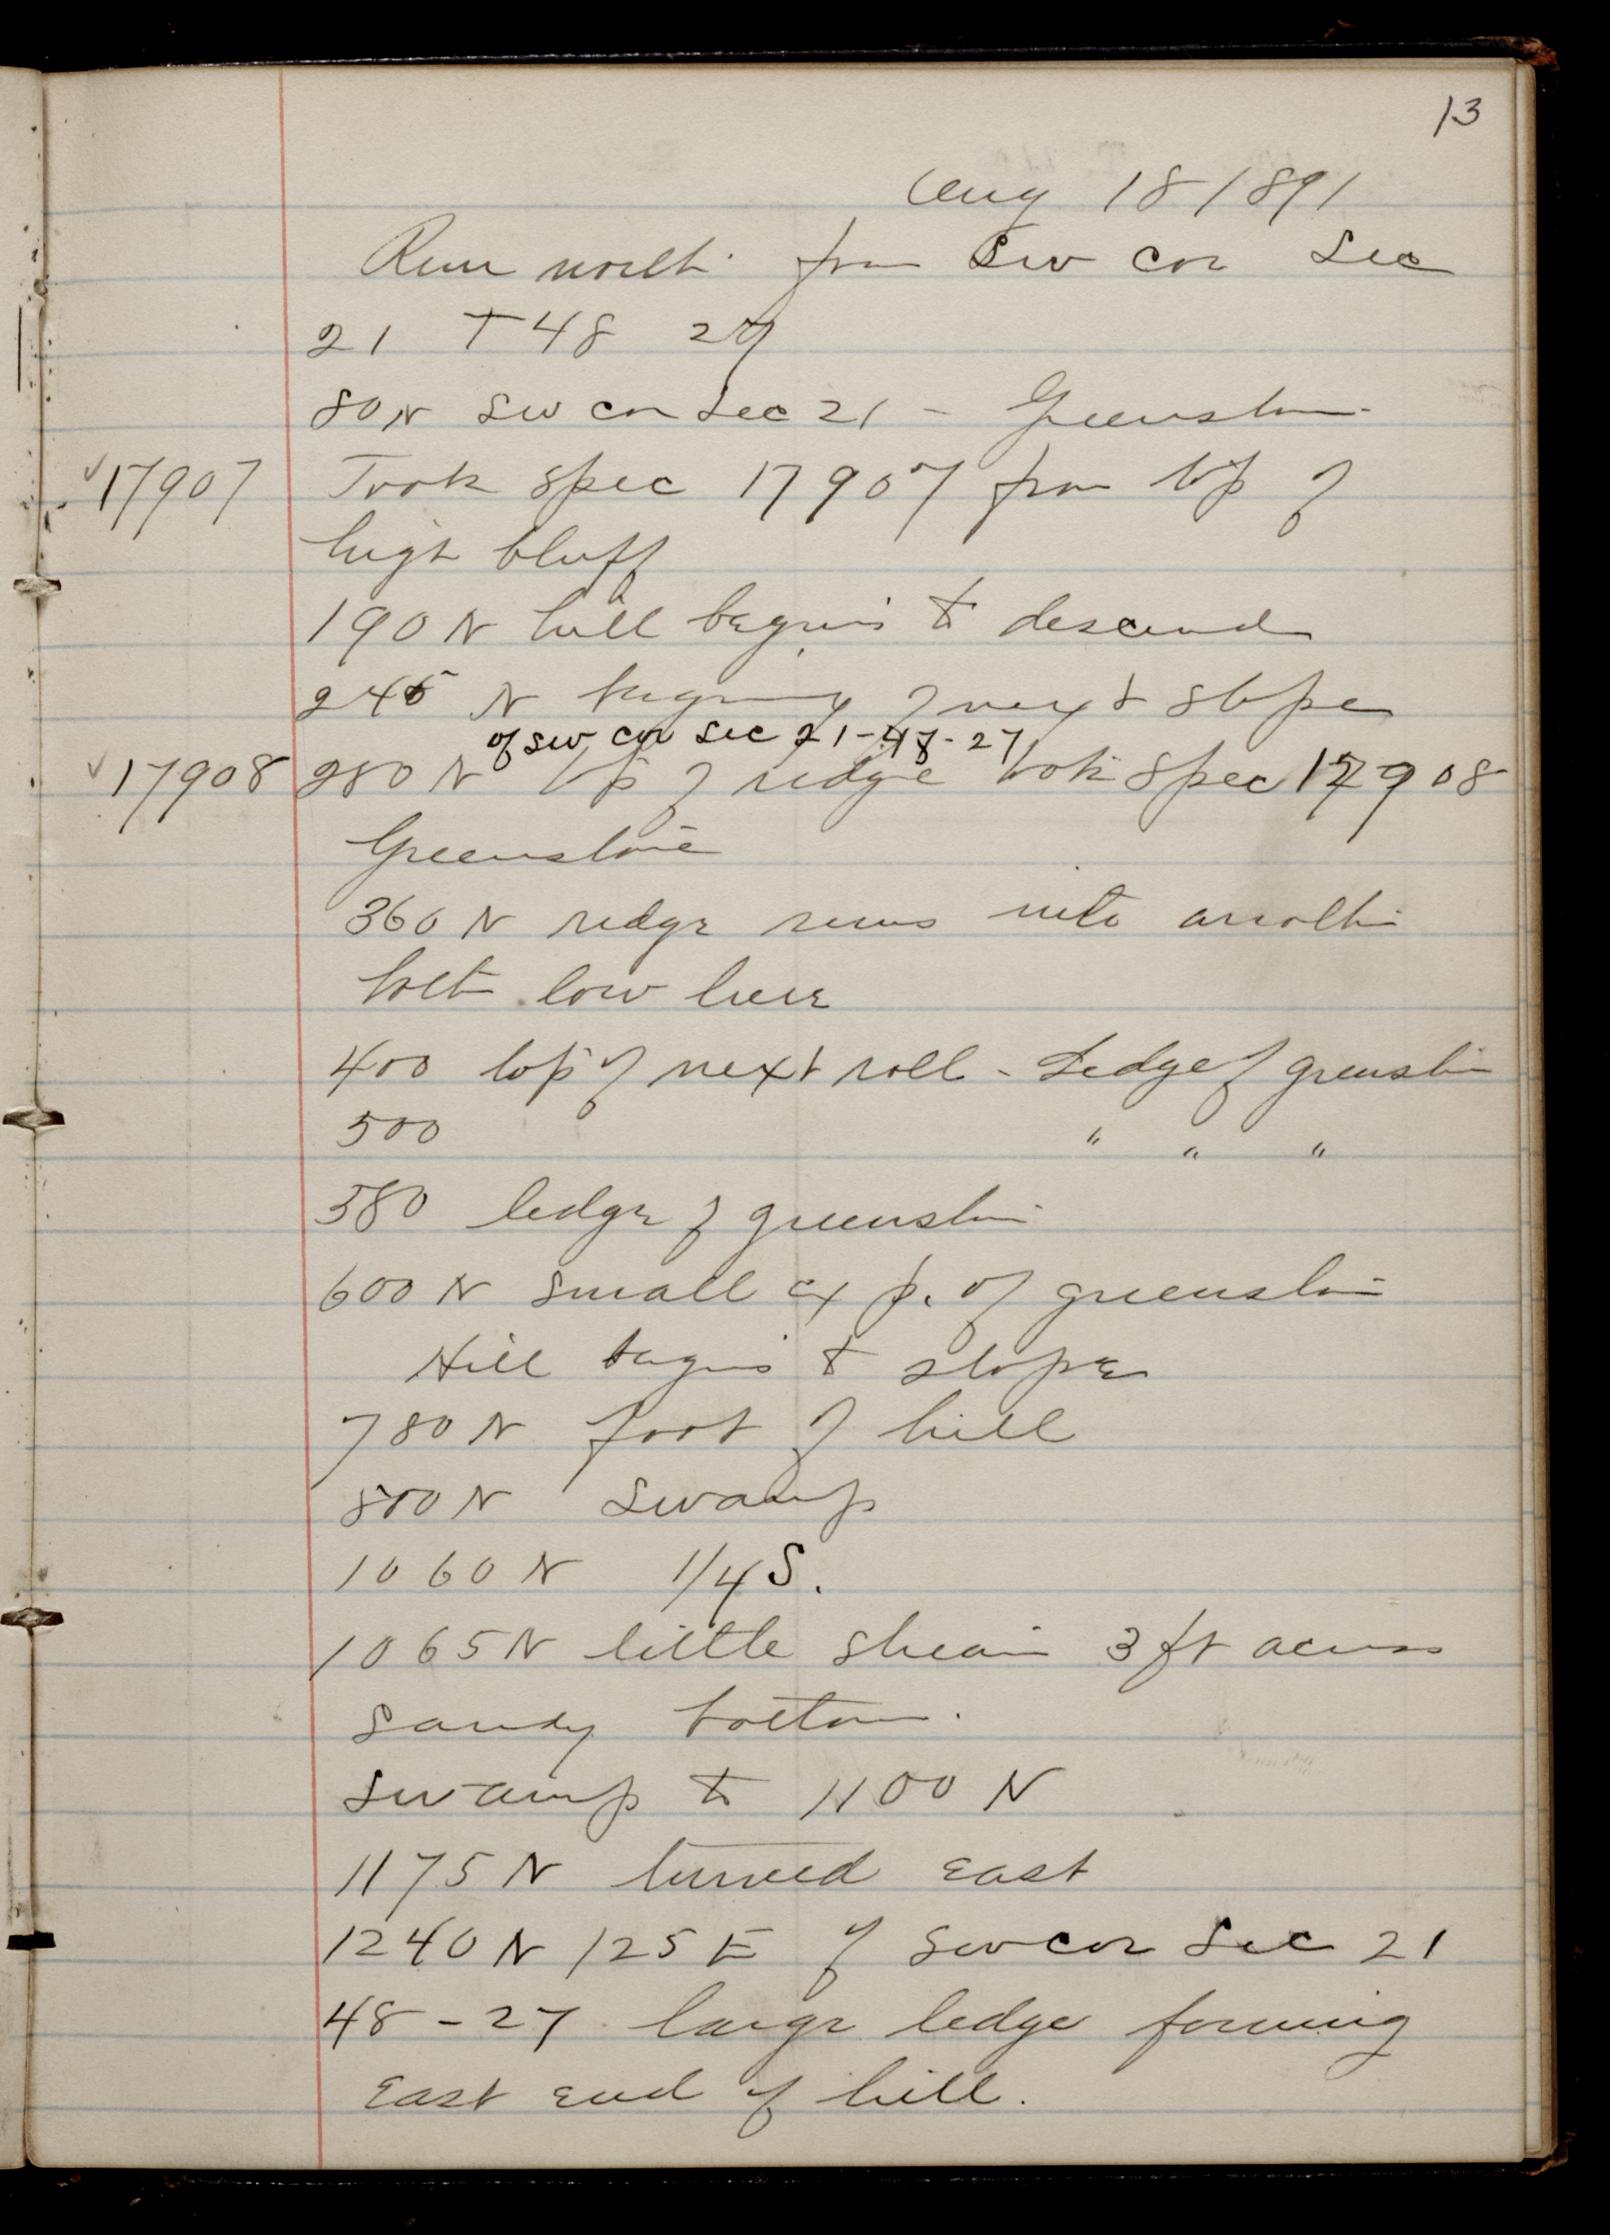 13
Aug 18 1891
Run north from SW cor Sec
21 T 48 27
80 N SW cor Sec 21 - Greenstone
✓17907 Took spec 17907 from top of
high bluff
190 N hill begins to descend
245 N begining of next slope
of SW cor Sec 21-48-27
✓17908 280 N top of ridge took spec 17908
Greenstone
360 N ridge runs into another
both low here
400 top of next roll - Ledge of greenstone
500 " " "
580 ledge of greenstone
600 N small exp. of greenstone
Hill begins to slope
780 N foot of hill
800 N Swamp
1060 N 1/4 S.
1065 N little stream 3 ft across
sandy bottom.
Swamp to 1100 N
1175 N turned east
1240 N 125 E of SW cor Sec 21
48-27 large ledge forming
East end of hill.